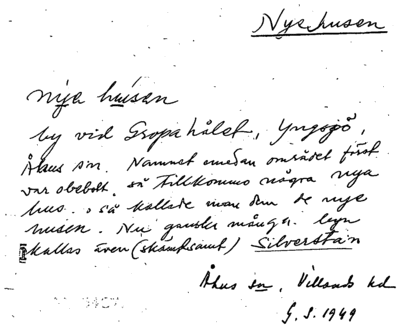 Nyehusen
nya húsen
by vid Gropahålet, Yngsjö,
Åhus sn. Namnet emedan området först
var obebott, så tillkommo några nya
hus. så kallade man dem de nye
husen. Nu ganska många. byn
kallas även (skämtsamt) Silversta'n
Åhus sn, Villands hd
G. S. 1949